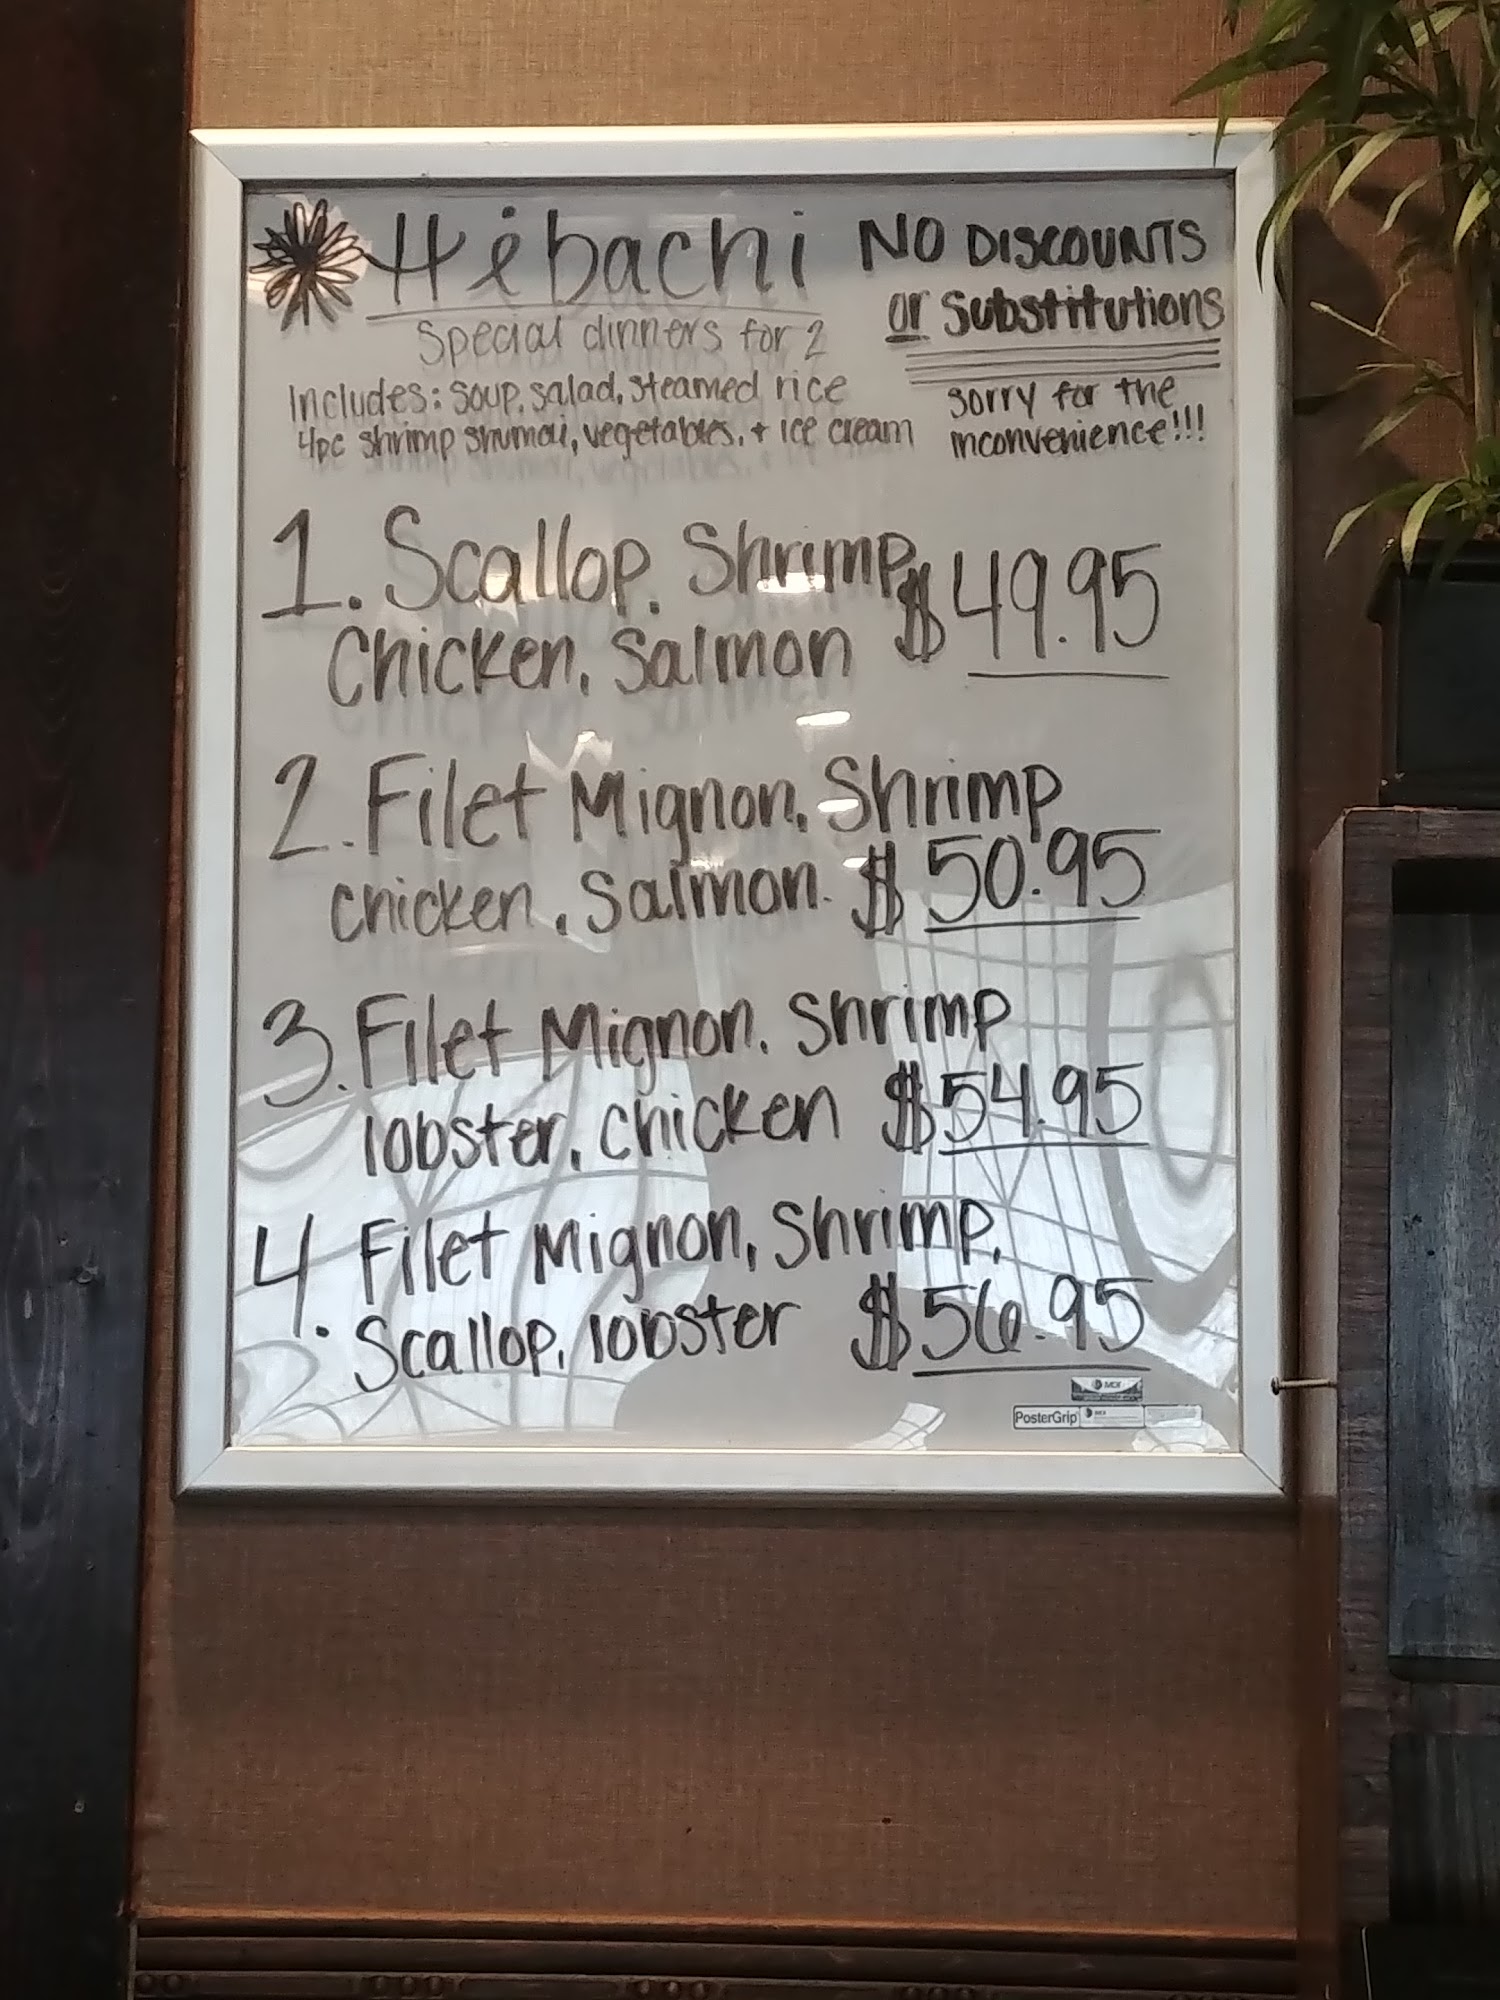 Hibachi
Special dinners for 2
Includes: soup, salad, steamed rice
4pc shrimp shumai, vegetables, + ice cream
NO DISCOUNTS
or Substitutions
sorry for the
inconvenience!!!
1. Scallop, Shrimp,
Chicken, Salmon $49.95
2. Filet Mignon, Shrimp
chicken, Salmon. $50.95
3. Filet Mignon, Shrimp
lobster, chicken $54.95
4. Filet Mignon, Shrimp,
Scallop, lobster $56.95
MCX
PosterGrip